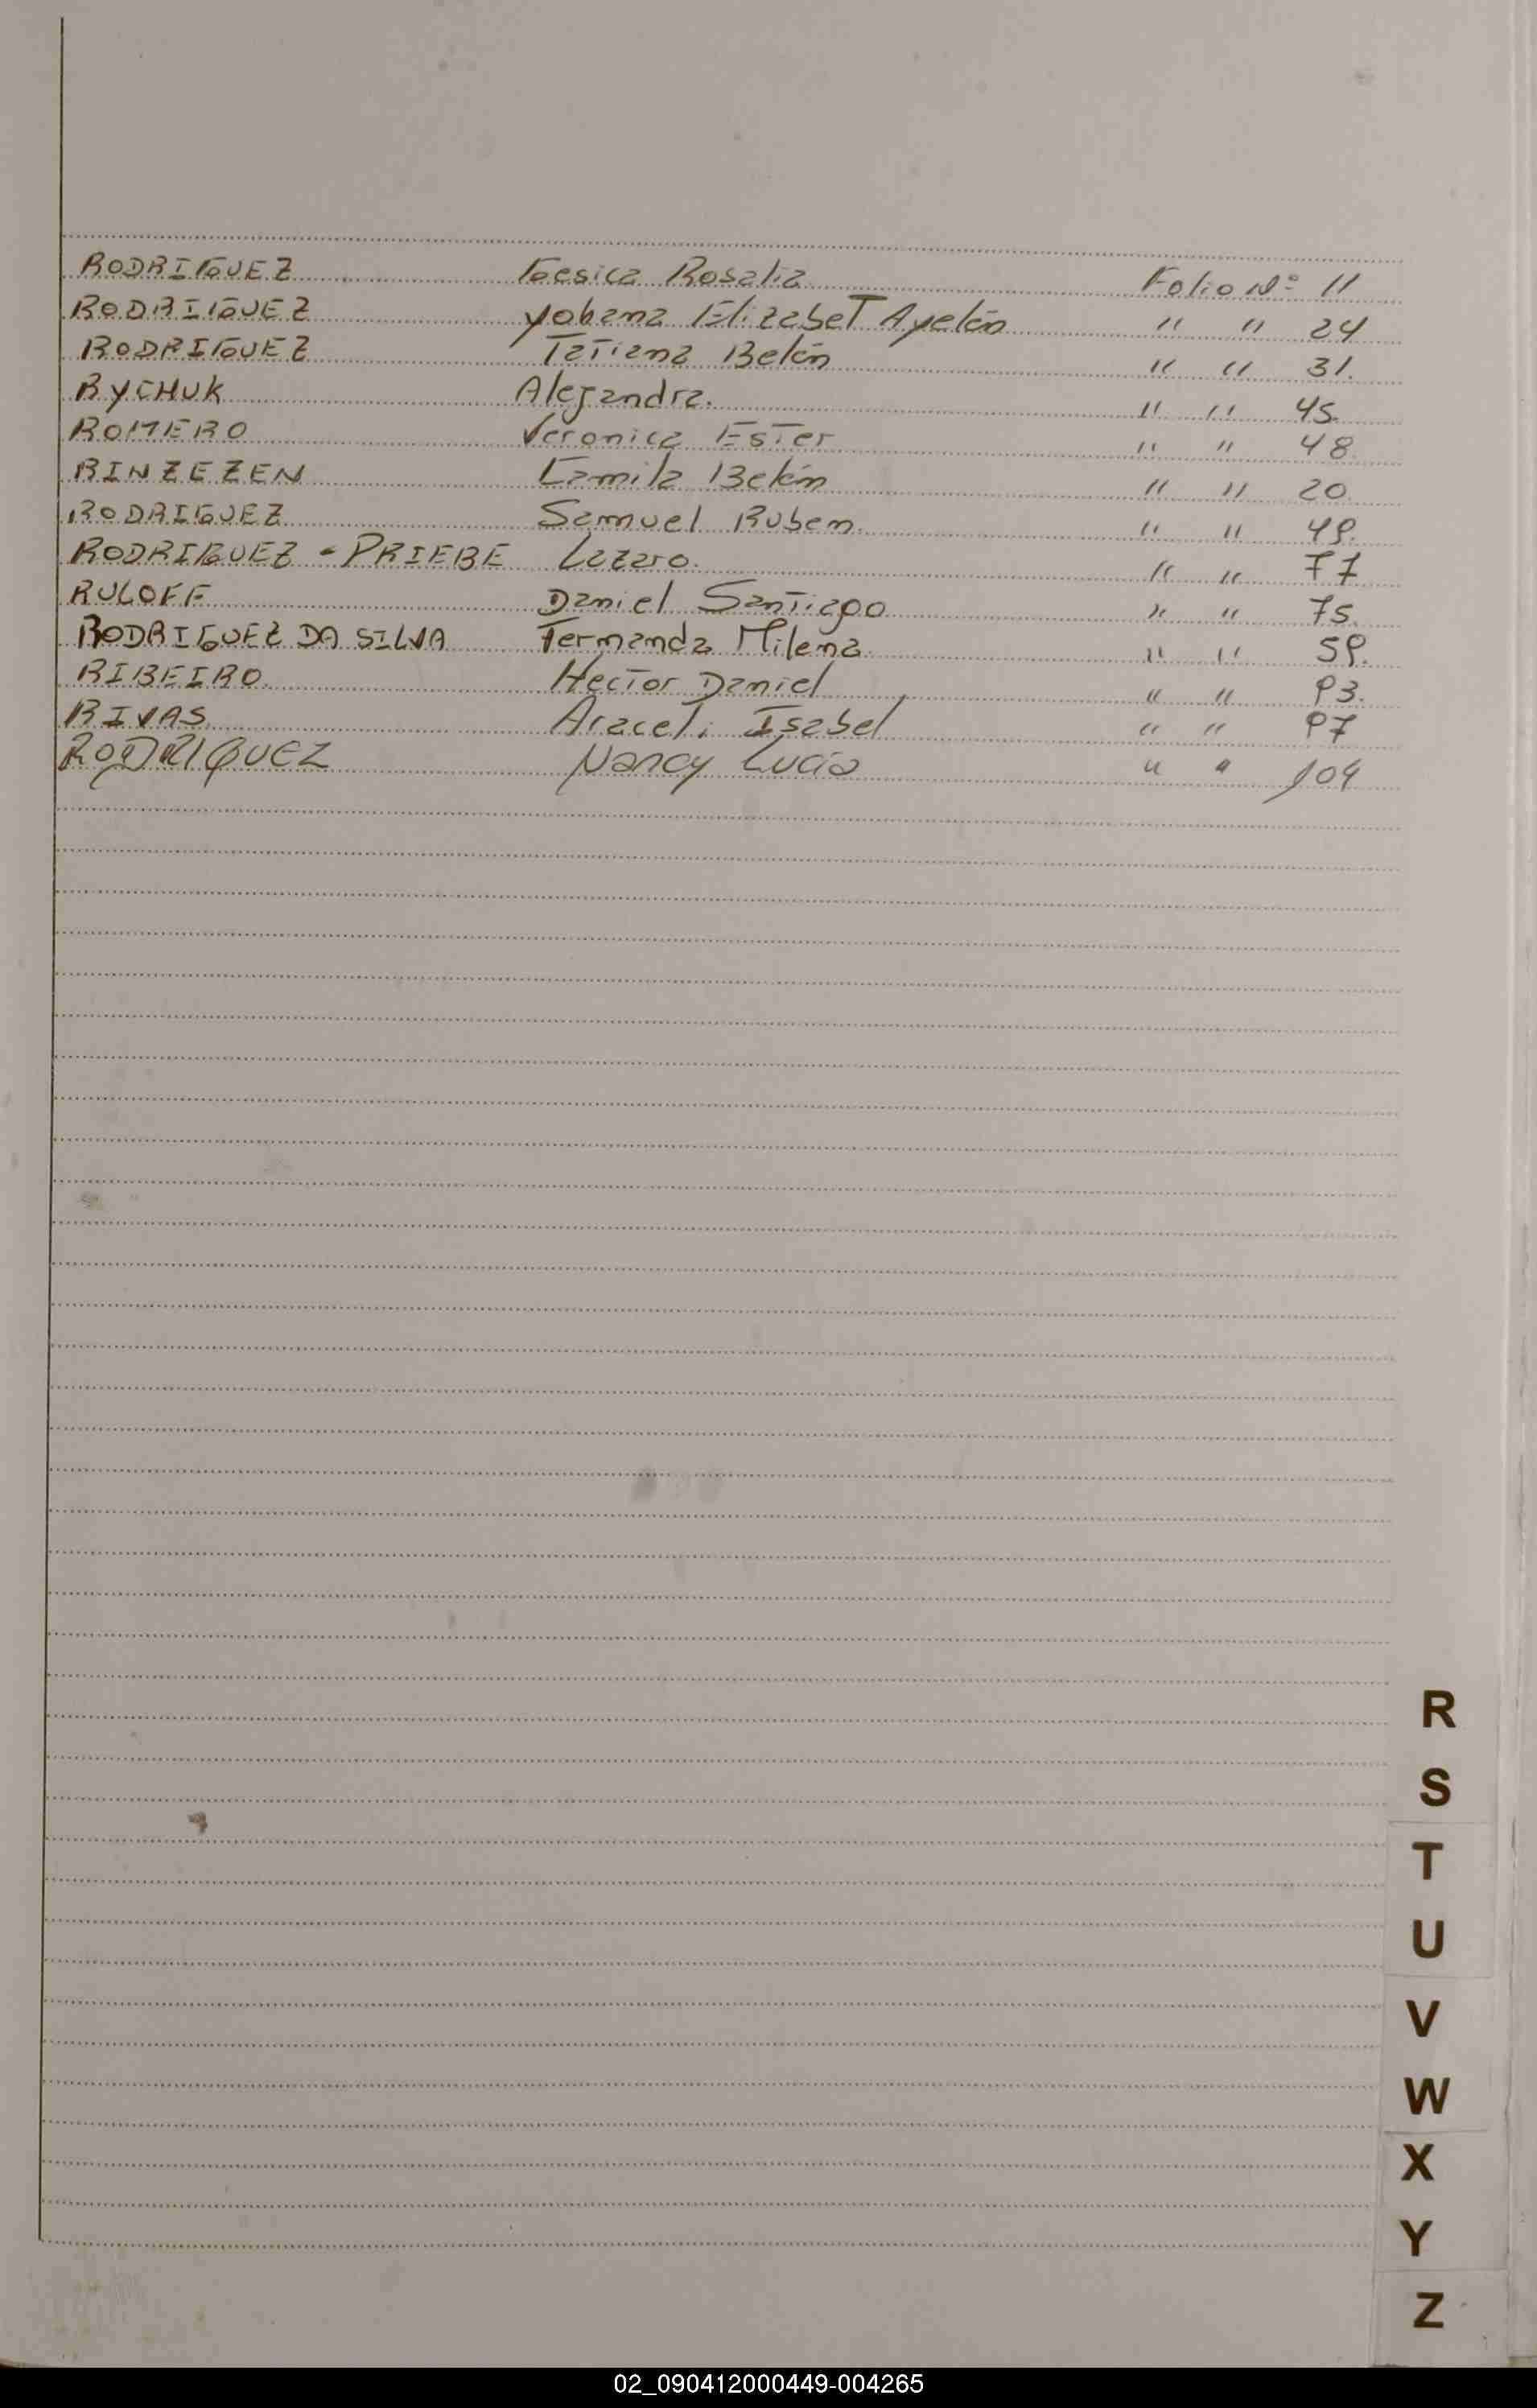 RODRIGUEZ Gesica Rosalia Folio Nº 11
RODRIGUEZ Yohana Elizabet Ayelén " " 24
RODRIGUEZ Tatiana Belén " " 31.
RYCHUK Alejandra. " " 45.
ROMERO Veronica Ester " " 48.
RINZEZEN Camila Belén " " 20.
RODRIGUEZ Samuel Ruben. " " 49.
RODRIGUEZ - PRIEBE Lazaro. " " 77
RULOFF Daniel Santiago " " 75.
RODRIGUEZ DA SILVA Fernanda Milena. " " 59.
RIBEIRO. Hector Daniel " " 93.
RIVAS Araceli Isabel " " 97
RODRIGUEZ Nancy Lucia " " 104
R
S
T
U
V
W
X
Y
Z
02_090412000449-004265